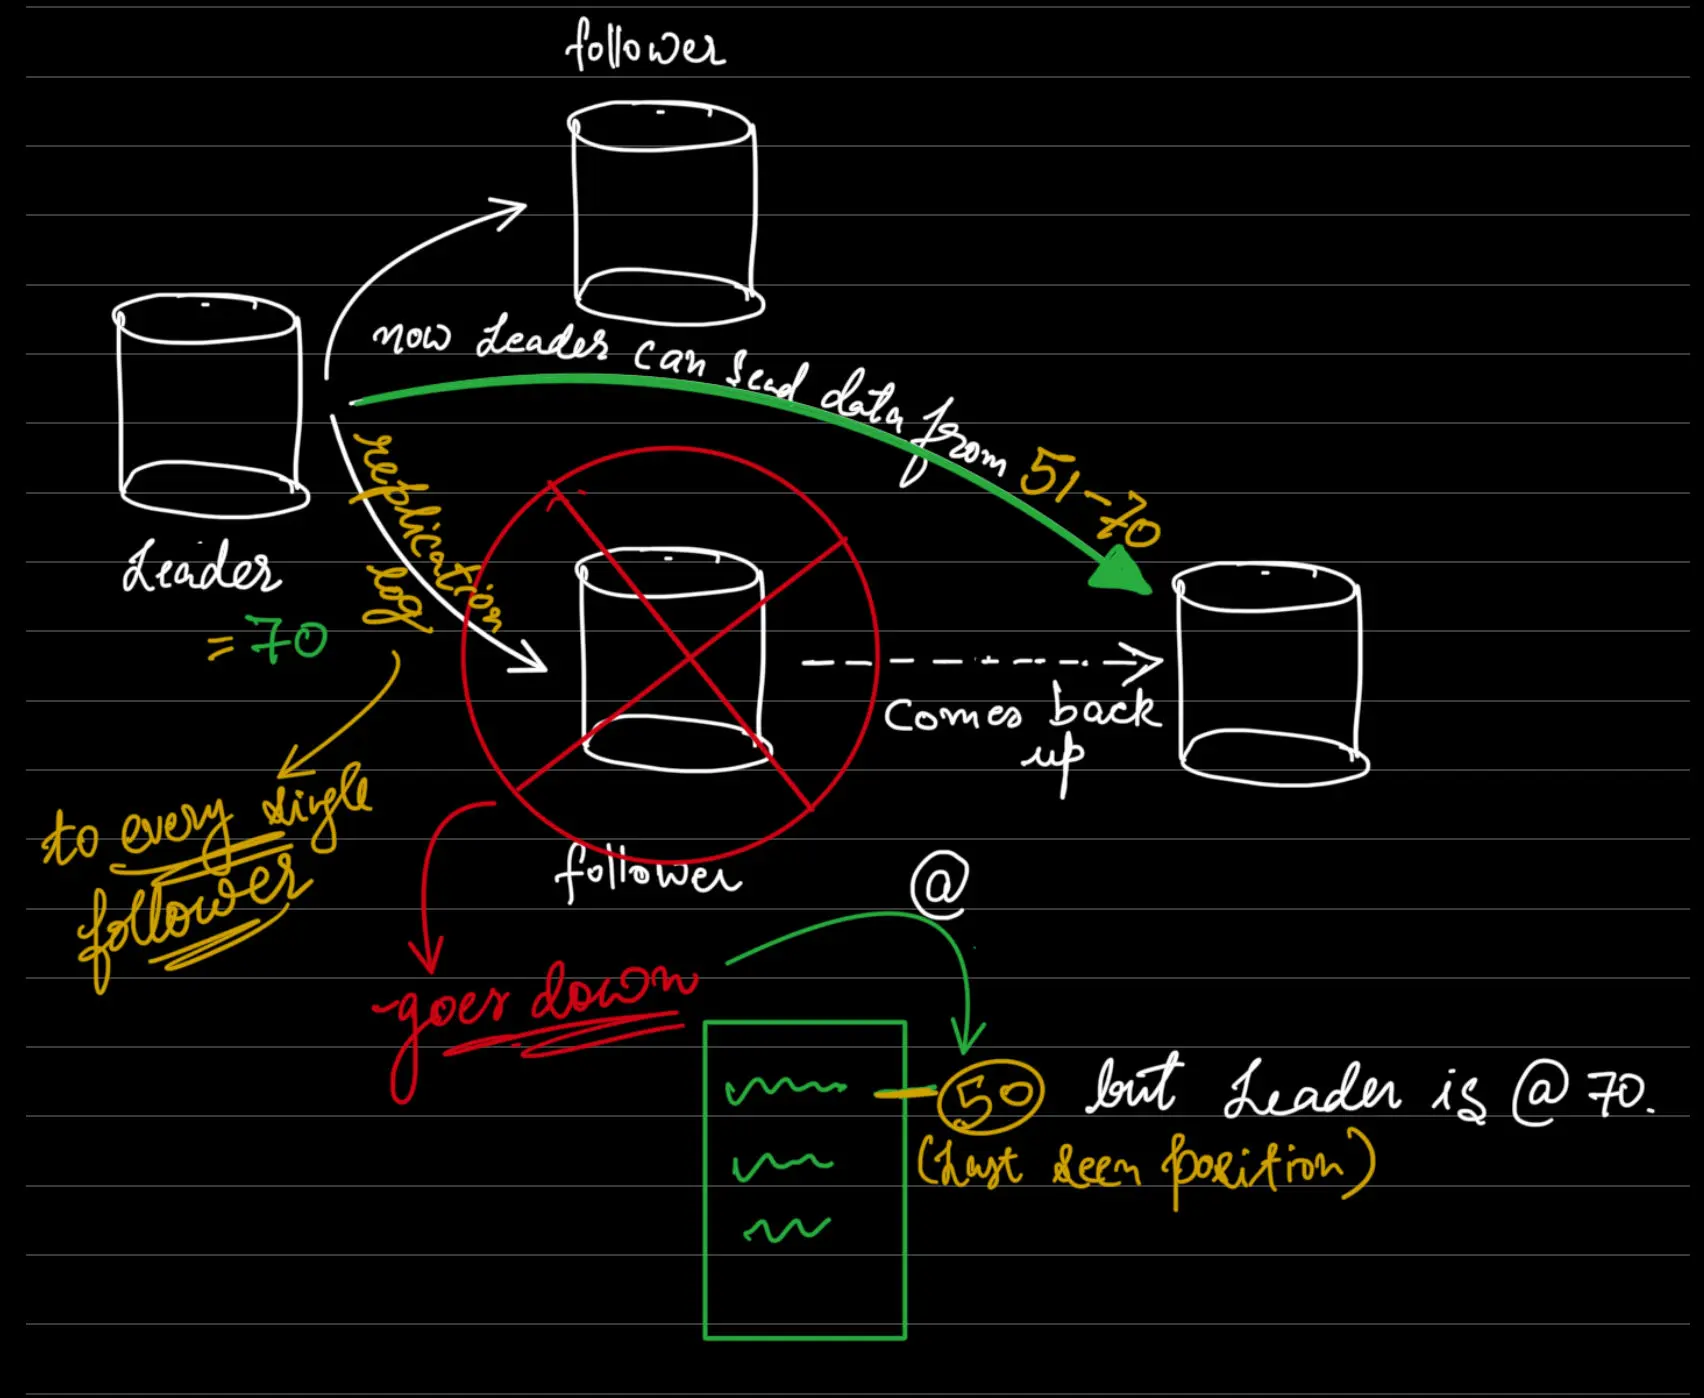 follower
now Leader can send data from 51-70
replication
log
Leader
= 70
comes back
up
to every single
follower
follower
@
goes down
50 but Leader is @ 70.
(Last seen position)